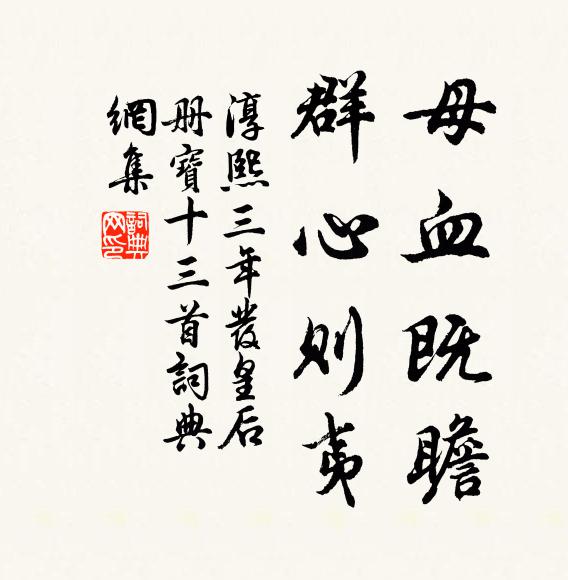 母血既瞻
群心則夷
淳熙三年發皇后
册寶十三首詞典
網集
詞典
网印